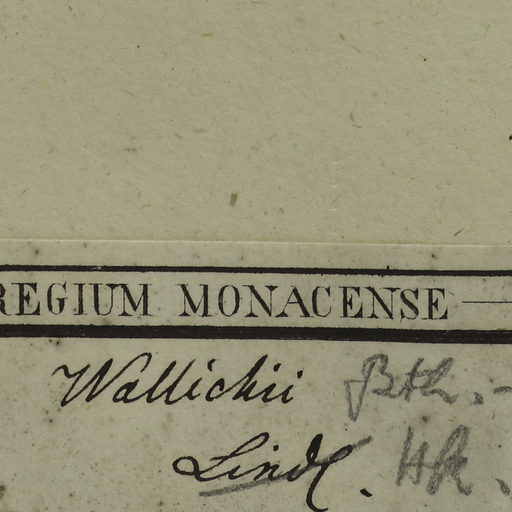 REGIUM MONACENSE
Wallichii Bth.-
Lindl. Hk.